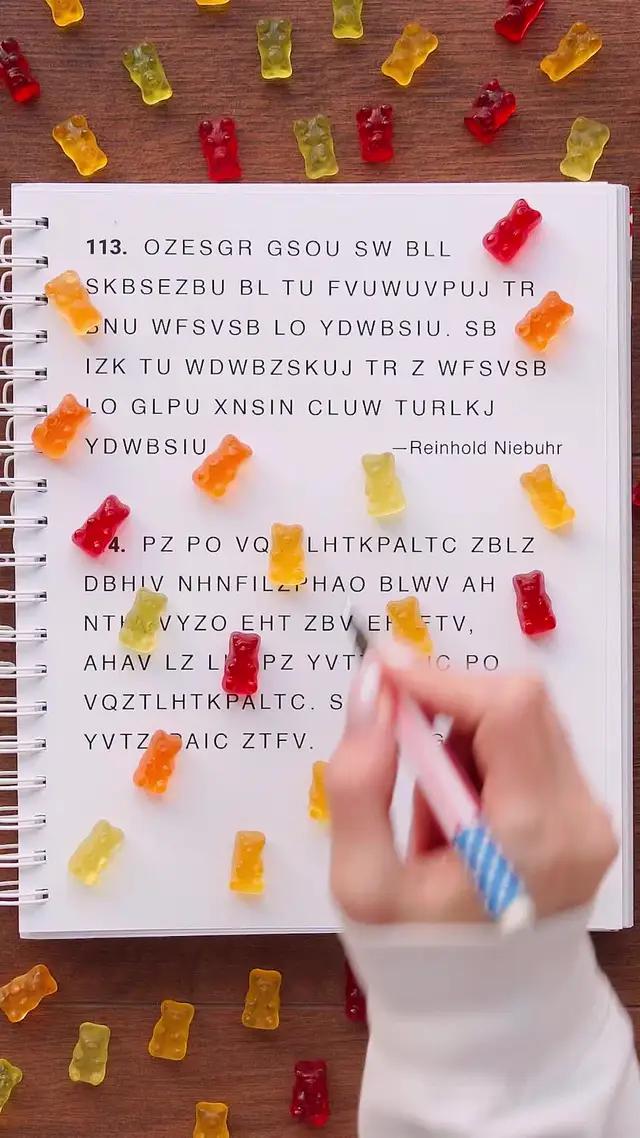 113. OZESGR GSOU SW BLL
SKBSEZBU BL TU FVUWUVPUJ TR
BNU WFSVSB LO YDWBSIU. SB
IZK TU WDWBZSKUJ TR Z WFSVSB
LO GLPU XNSIN CLUW TURLKJ
YDWBSIU
—Reinhold Niebuhr
PZ PO ZBLZ
DBHIV NHNFILZPHAO BLWV AH
EHT ZBV
AHAV LZ PZ PO
VQZTLHTKPALTC.
ZTFV.